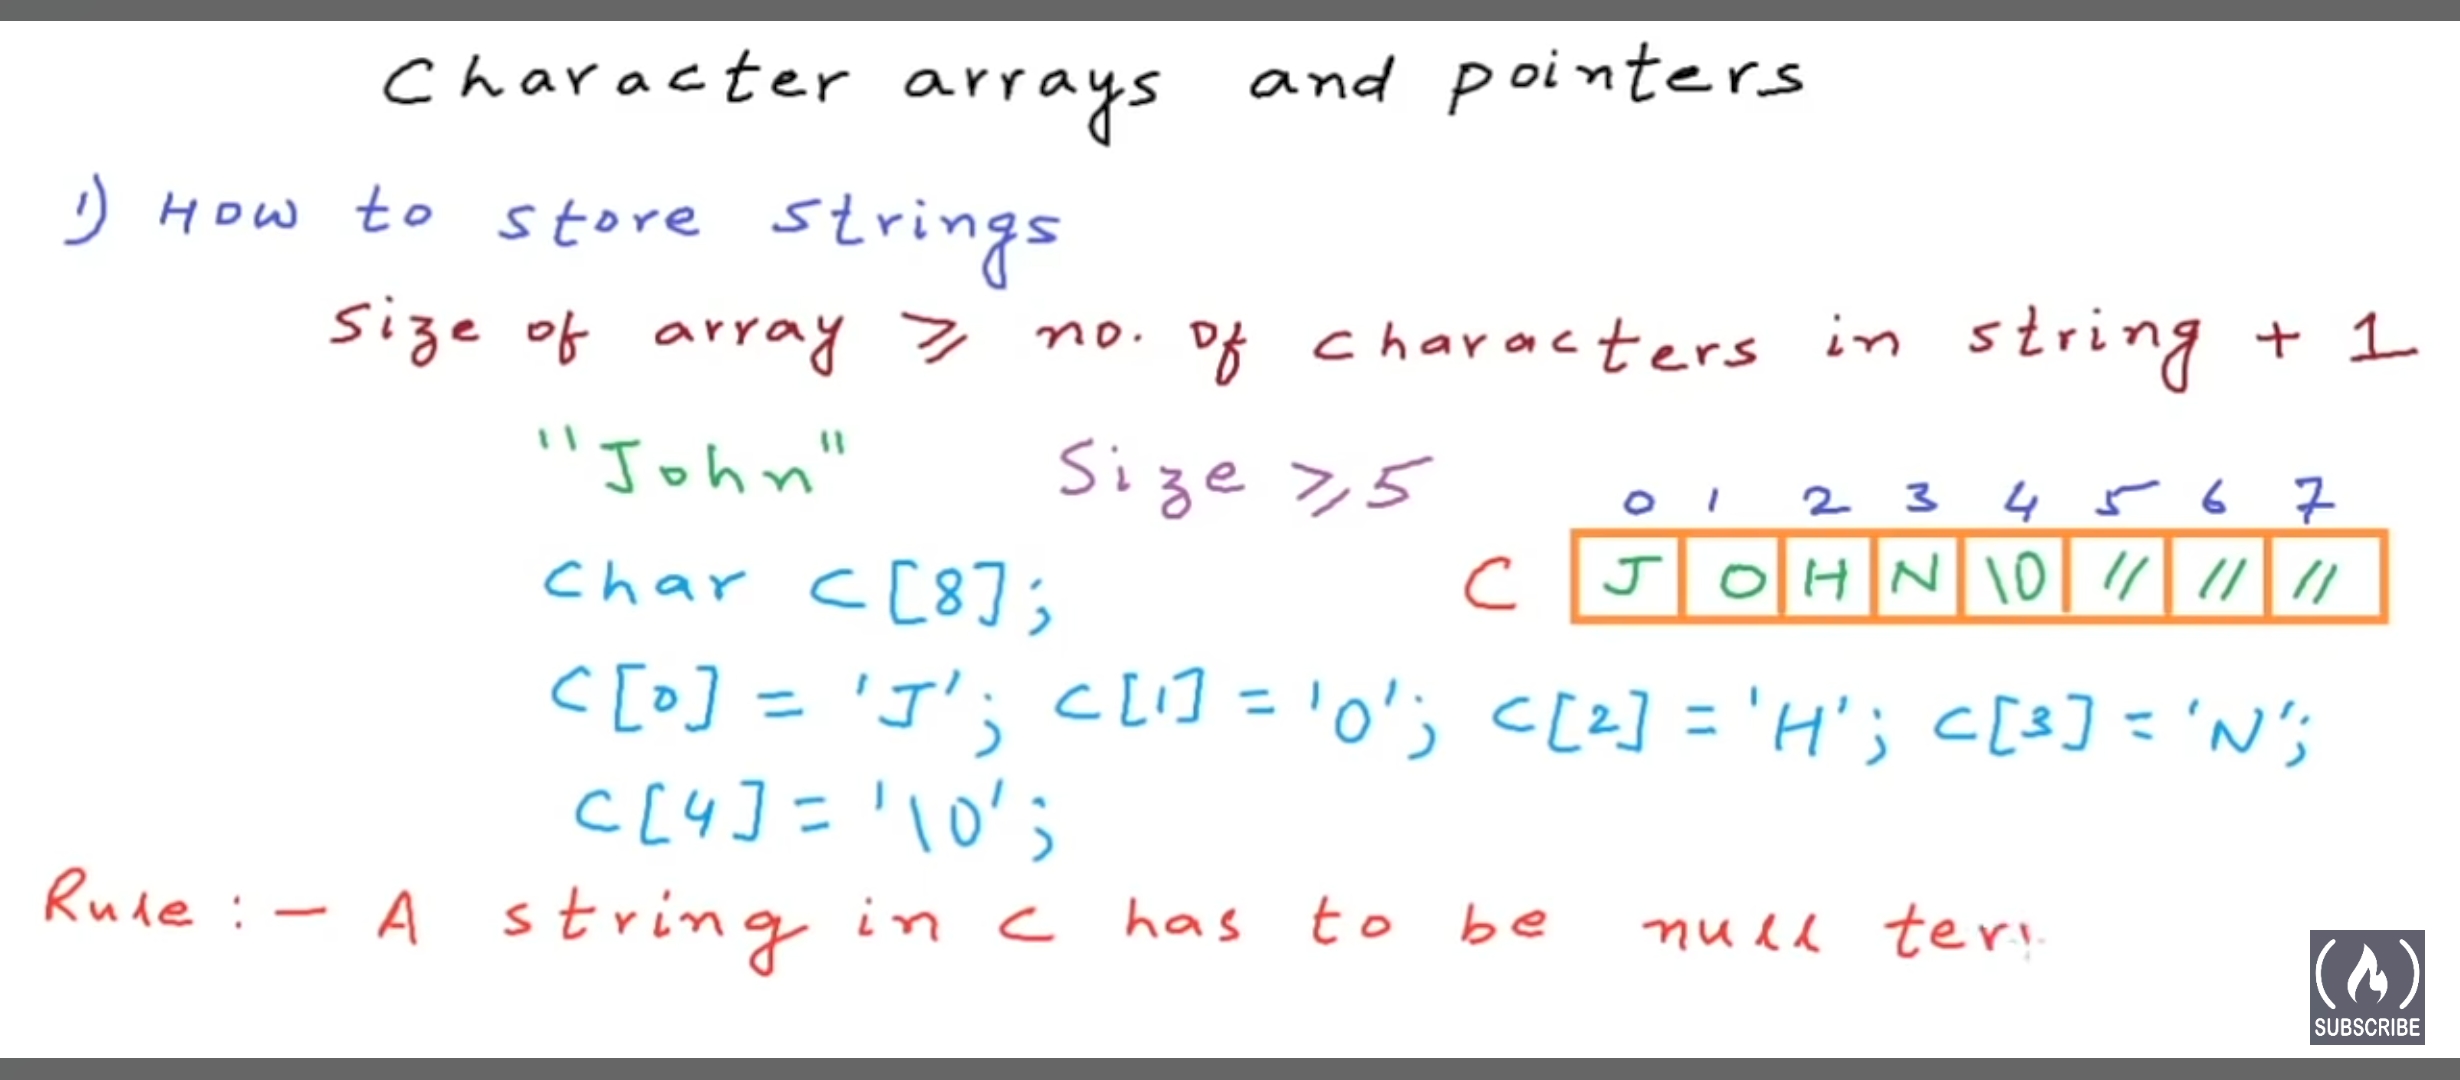 Character arrays and pointers
1) How to store strings
Size of array ≥ no. of characters in string + 1
"John" Size ≥ 5
0 1 2 3 4 5 6 7
Char C[8]; C J O H N \0 // // //
C[0] = 'J'; C[1] = 'O'; C[2] = 'H'; C[3] = 'N';
C[4] = '\0';
Rule :- A string in C has to be null ter
SUBSCRIBE